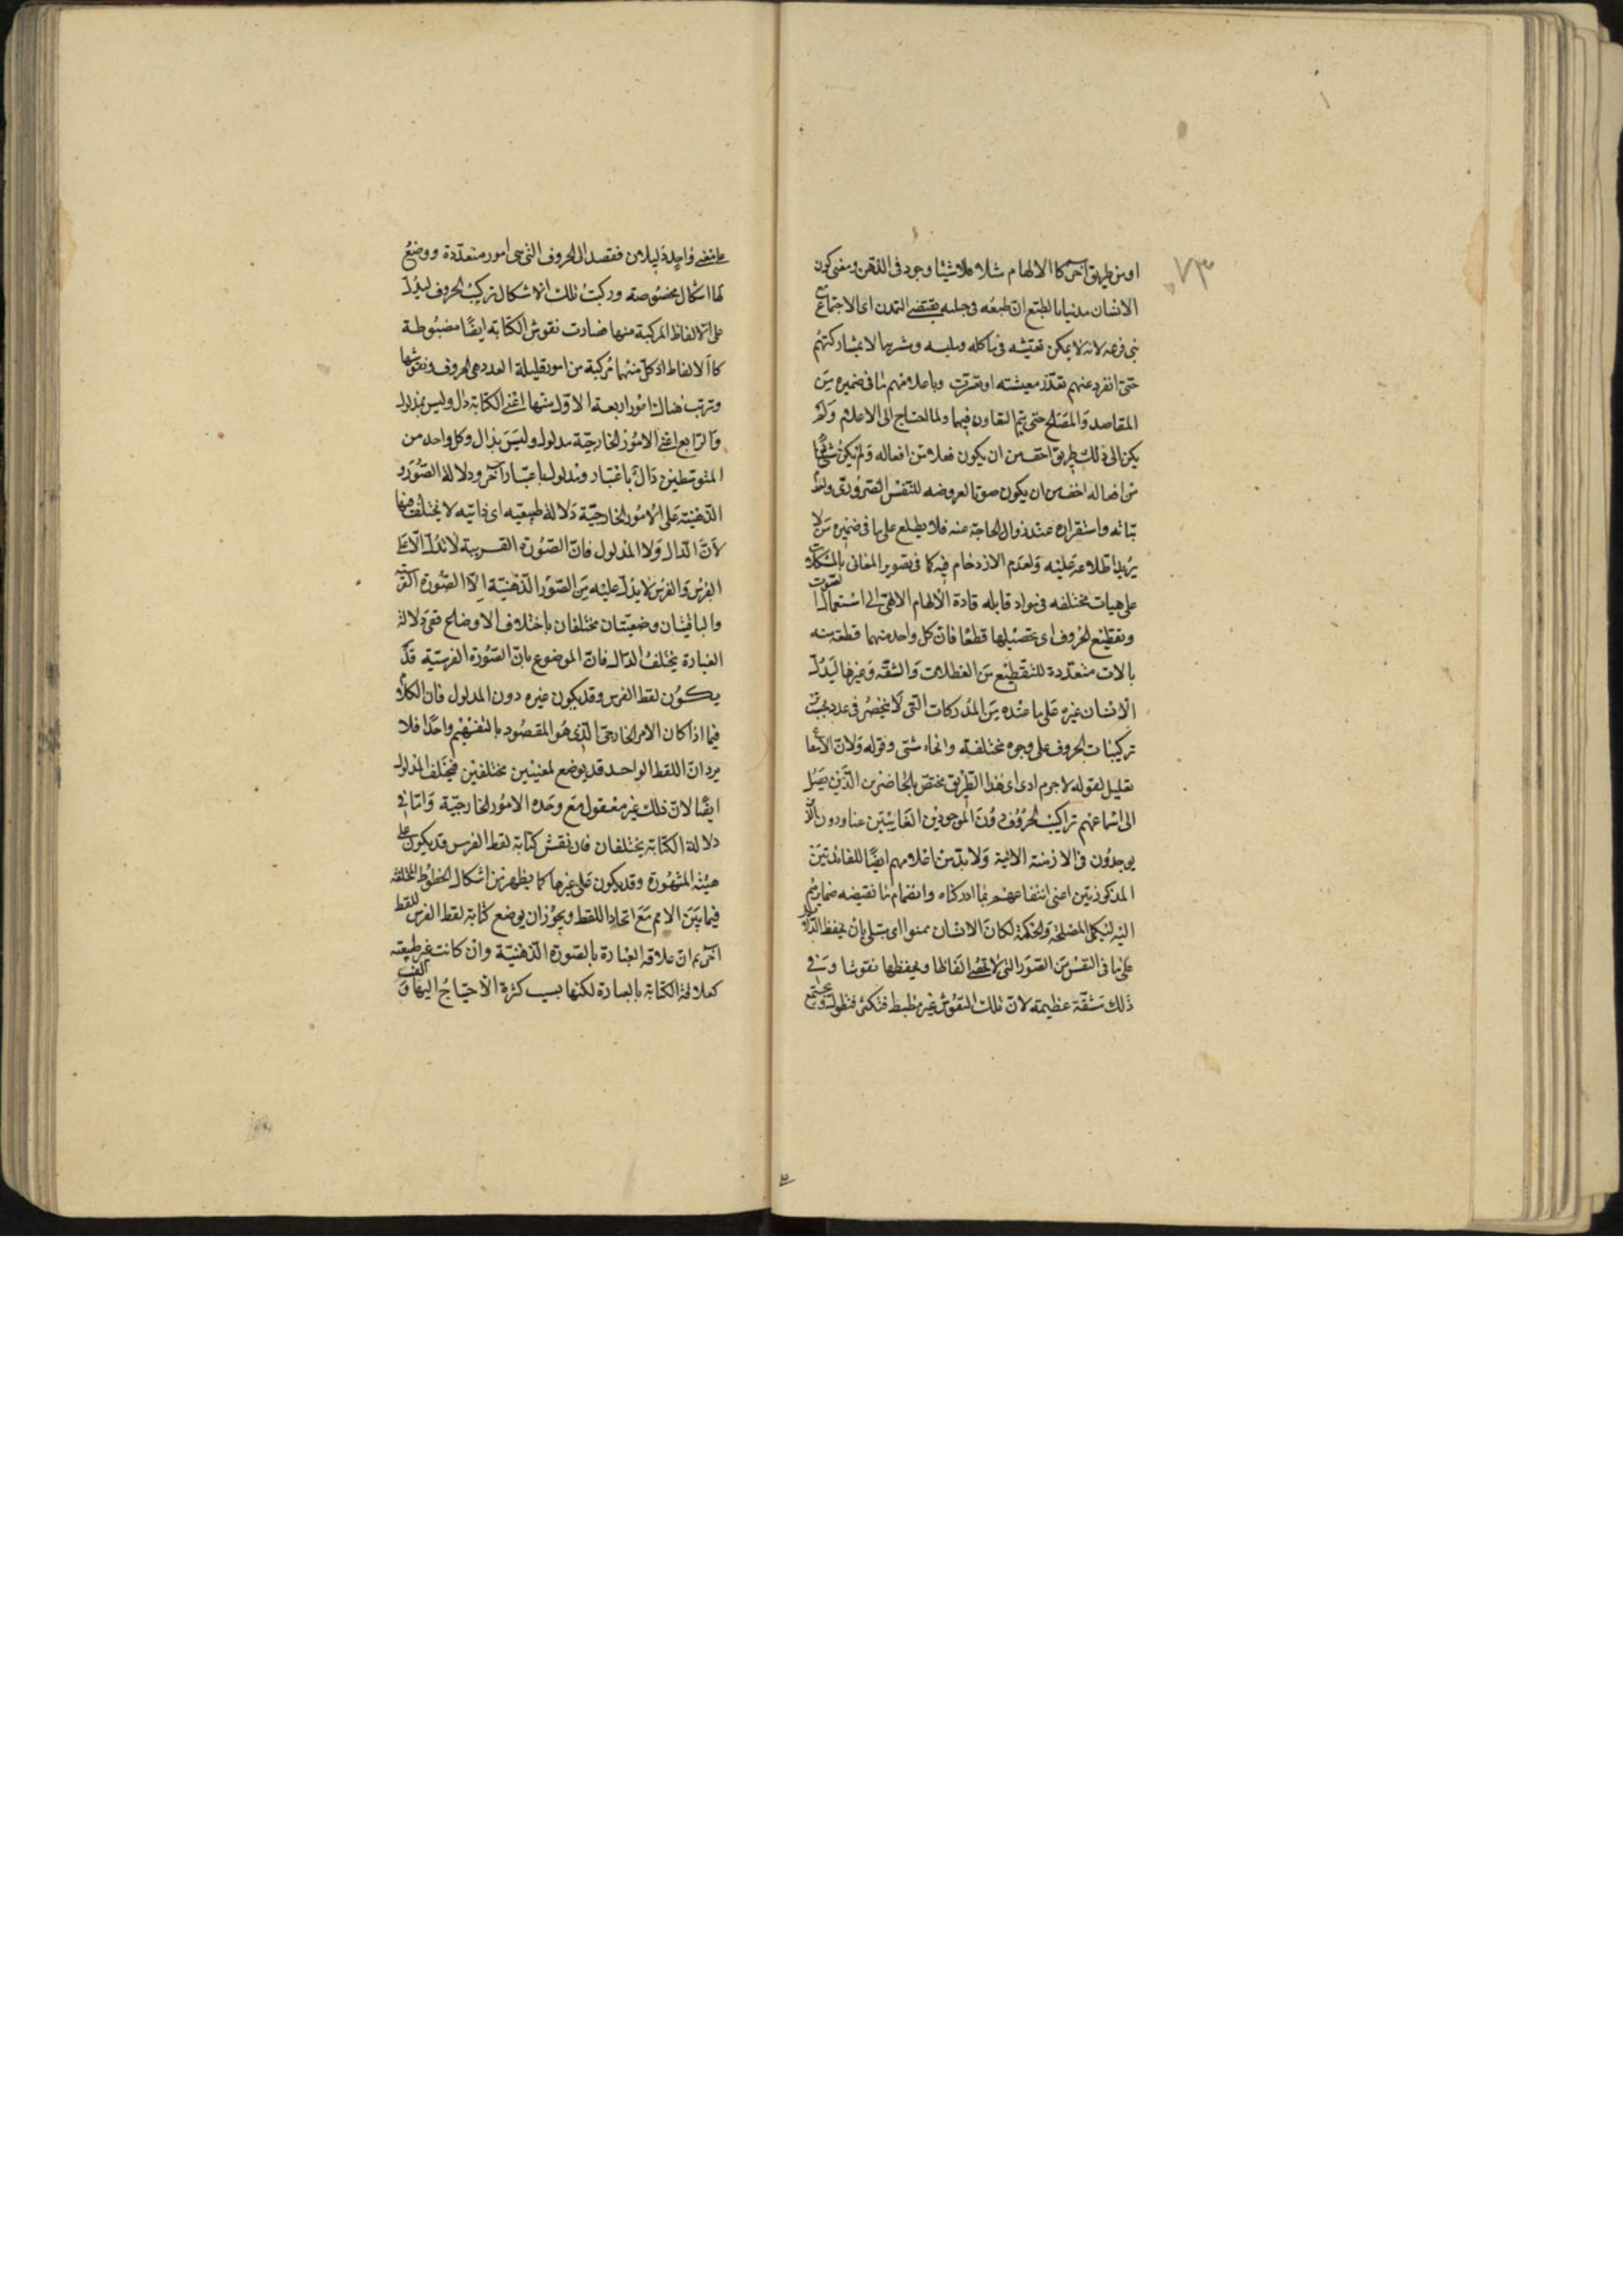 ٧٣
او من طريق آخر كالالهام مثلا فلا شيئا وجود فى الذهن ومعنى كون
الانسان مدنيا بالطبع ان طبعه فى جبلته يقتضى التمدن اى الاجتماع مع
بنى نوعه لانه لا يمكن تعيشه فى ماكله وملبسه ومشربه الا بمشاركتهم
حتى انفرد عنهم تعذر معيشته او تعسرت وباعلامهم ما فى ضميره من
المقاصد والمصالح حتى يتم التعاون فيما ولما احتاج الى الاعلام ولم
يكن الى ذلك طريق اخف من ان يكون فعلا من افعاله ولم يكن شئ
من افعاله اخف من ان يكون صوتا لعروضه للتنفس الضرورى ولعدم
ثباته واستقراره عند زوال الحاجة عنه فلا يطلع على ما فى ضميره من لا
يريد اطلاعه عليه ولعدم الازدحام فيه كما فى تصوير المعانى بالمشكلات
على هيات مختلفه فى مواد قابله قاده الالهام الالهى الى استعمال الصوت
وتقطيع الحروف اى تحصيلها قطعا فان كل واحد منهما قطعة منه
بالات متعددة للتقطيع من العضلات والشفه وغيرها ليدل
الانسان غيره على ما عنده من المدركات التى لا تنحصر فى عدد بحسب
تركيبات الحروف على وجوه مختلفة وانحاء شتى وقوله ولان الانتفاع
تعليل لقوله لا جرم ادى اى هذا الطريق مختص بالحاضرين الذين يصل
الى اسماعهم تراكيب الحروف دون الموجودين الغايبين عنا ودون الذين
يوجدون فى الازمنة الاتية ولا بد من اعلامهم ايضا للفائدتين
المذكورتين اعنى انتفاعهم بما ادركناه وانضمام ما تقتضيه ضمايرهم
اليه لتكمل المصلحة والحكمة لكان الانسان ممنوا اى مبتلى بان يحفظ الدلائل
على ما فى النفس من الصور التى لا تحصى الفاظا ويحفظها نقوشا وفى
ذلك مشقة عظيمة لان تلك النقوش غير منضبط فتكثر فتطول ويجتمع
على معنى واحد دليلان فقصد الى الحروف التى هى امور متعددة ووضع
لها اشكال مخصوصة وركبت تلك الاشكال تركيب الحروف ليدل
على الالفاظ المركبة منها فصارت نقوش الكتابة ايضا مضبوطة
كالالفاظ اذ كل منهما مركبة من امور قليلة العدد هى الحروف ونقوشها
وترتب هناك امور اربعة الاول منها اعنى الكتابة دال وليس بمدلول
والرابع اعنى الامور الخارجية مدلول وليس بدال وكل واحد من
المتوسطين دال باعتبار ومدلول باعتبار آخر ودلالة الصور
الذهنية على الامور الخارجية دلالة طبيعيه اى ذاتيه لا يختلف فيها
لان الدال ولا المدلول فان الصورة الفرسية لا تدل الا على
الفرس والفرس لا يدل عليه من الصور الذهنية الا الصورة الفرسية
والباقيتان وضعيتان مختلفان باختلاف الاوضاع ففى دلالة
العبارة يختلف الدال فان الموضوع بازاء الصورة الفرسية قد
يكون لفظ الفرس وقد يكون غيره دون المدلول فان الكلام
فيما اذا كان الامر الخارجى الذى هو المقصود بالتفهيم واحدا فلا
يرد ان اللفظ الواحد قد يوضع لمعنيين مختلفين فيختلف المدلول
ايضا لان ذلك غير معقول مع وحدة الامور الخارجية واما فى
دلالة الكتابة يختلفان فان نقش كتابة لفظ الفرس قد يكون على
هيئته المشهورة وقد يكون على غيرها كما يظهر من اشكال الخطوط المختلفة
فيما بين الامم مع اتحاد اللفظ ويجوز ان يوضع كتابة لفظ الفرس للفظ
آخر ثم ان علاقة العبارة بالصورة الذهنية وان كانت غير طبيعية
كعلاقة الكتابة بالعبارة لكنها بسبب كثرة الاحتياج اليها و